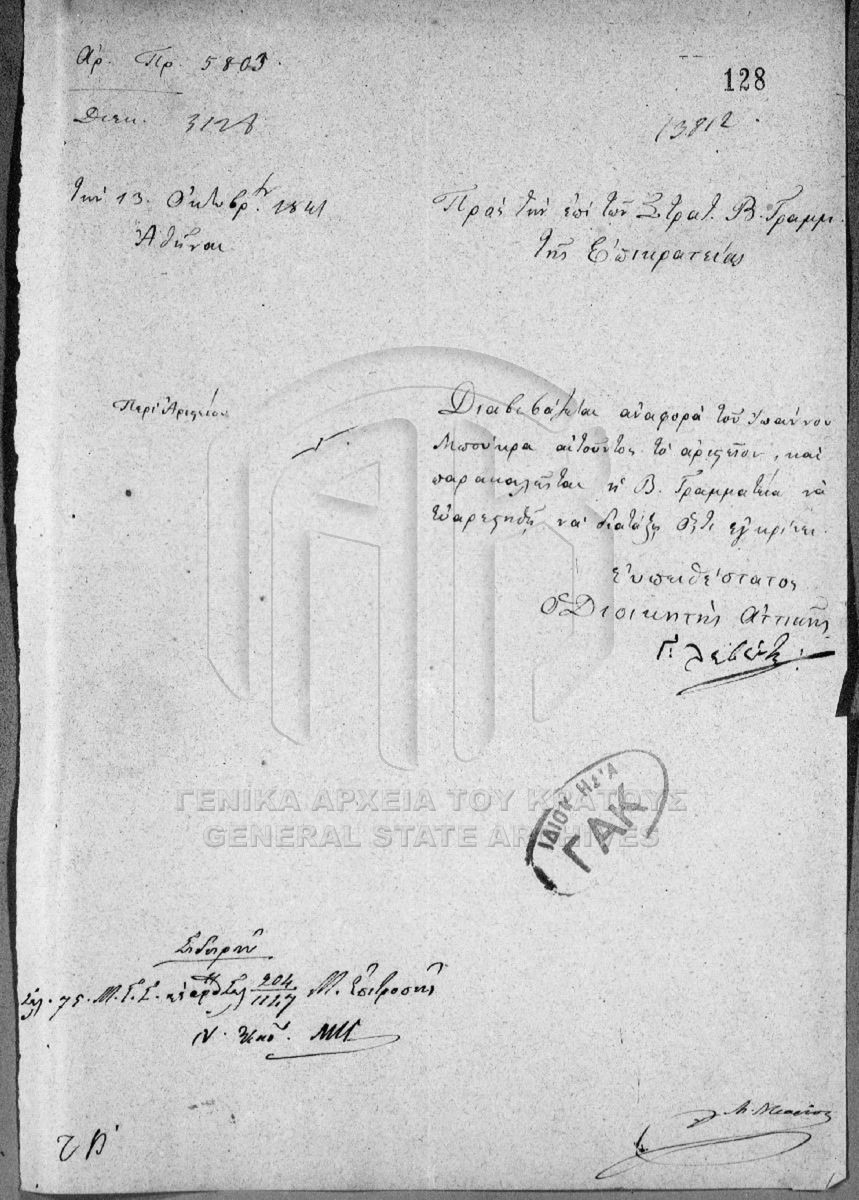 Αρ. Πρ. 5803.
128
Διεκ. 3128
13812.
Την 13 Οκτωβρ. 1841
Αθήναι
Προς την επί των Στρατ. Β. Γραμμ.
της Επικρατείας
Περί Αριστείου
Διαβιβάζεται αναφορά του Ιωάννου
Μπούκρα αιτούντος το αριστείον, και
παρακαλείται η Β. Γραμματεία να
ευαρεστηθή να διατάξη ό,τι εγκρίνει.
Ευπειθέστατος
Ο Διοικητής Αττικής
Γ.
ΓΕΝΙΚΑ ΑΡΧΕΙΑ ΤΟΥ ΚΡΑΤΟΥΣ
GENERAL STATE ARCHIVES
ΓΑΚ
Σιδηρούν
75. Μ. Γ. Σ. 204
1147 Μ. Επιτροπής